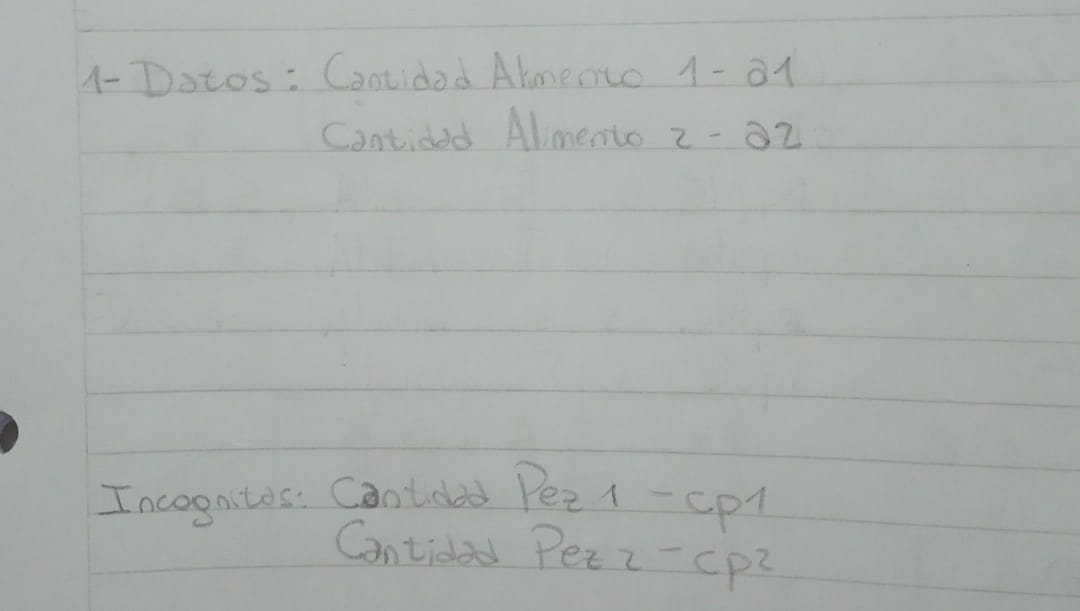 1- Datos: Cantidad Alimento 1 - a1
Cantidad Alimento 2 - a2
Incognitas: Cantidad Pez 1 - cp1
Cantidad Pez 2 - cp2